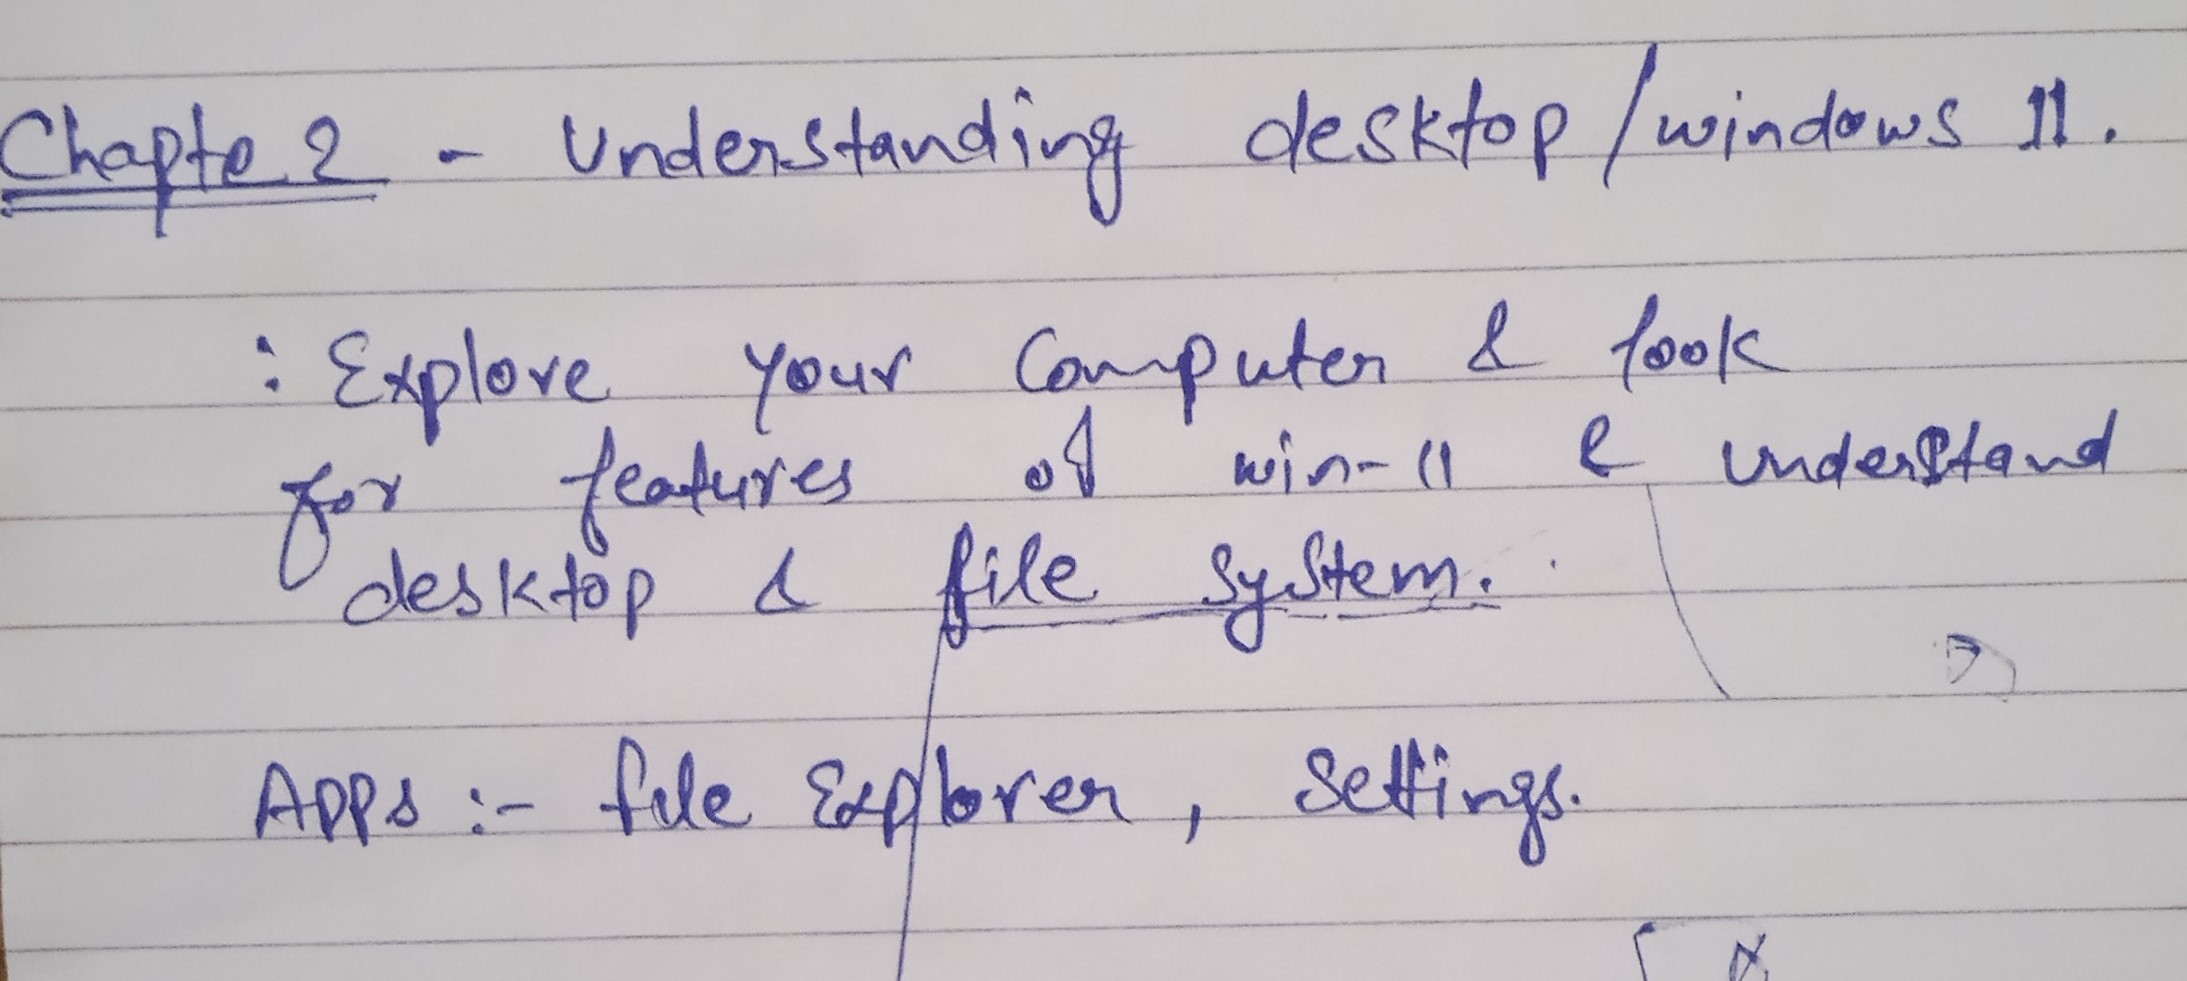 Chapte 2 - Understanding desktop / windows 11.
: Explore your Computer & look
for features of win-11 & understand
desktop & file system.
Apps :- file Explorer, Settings.